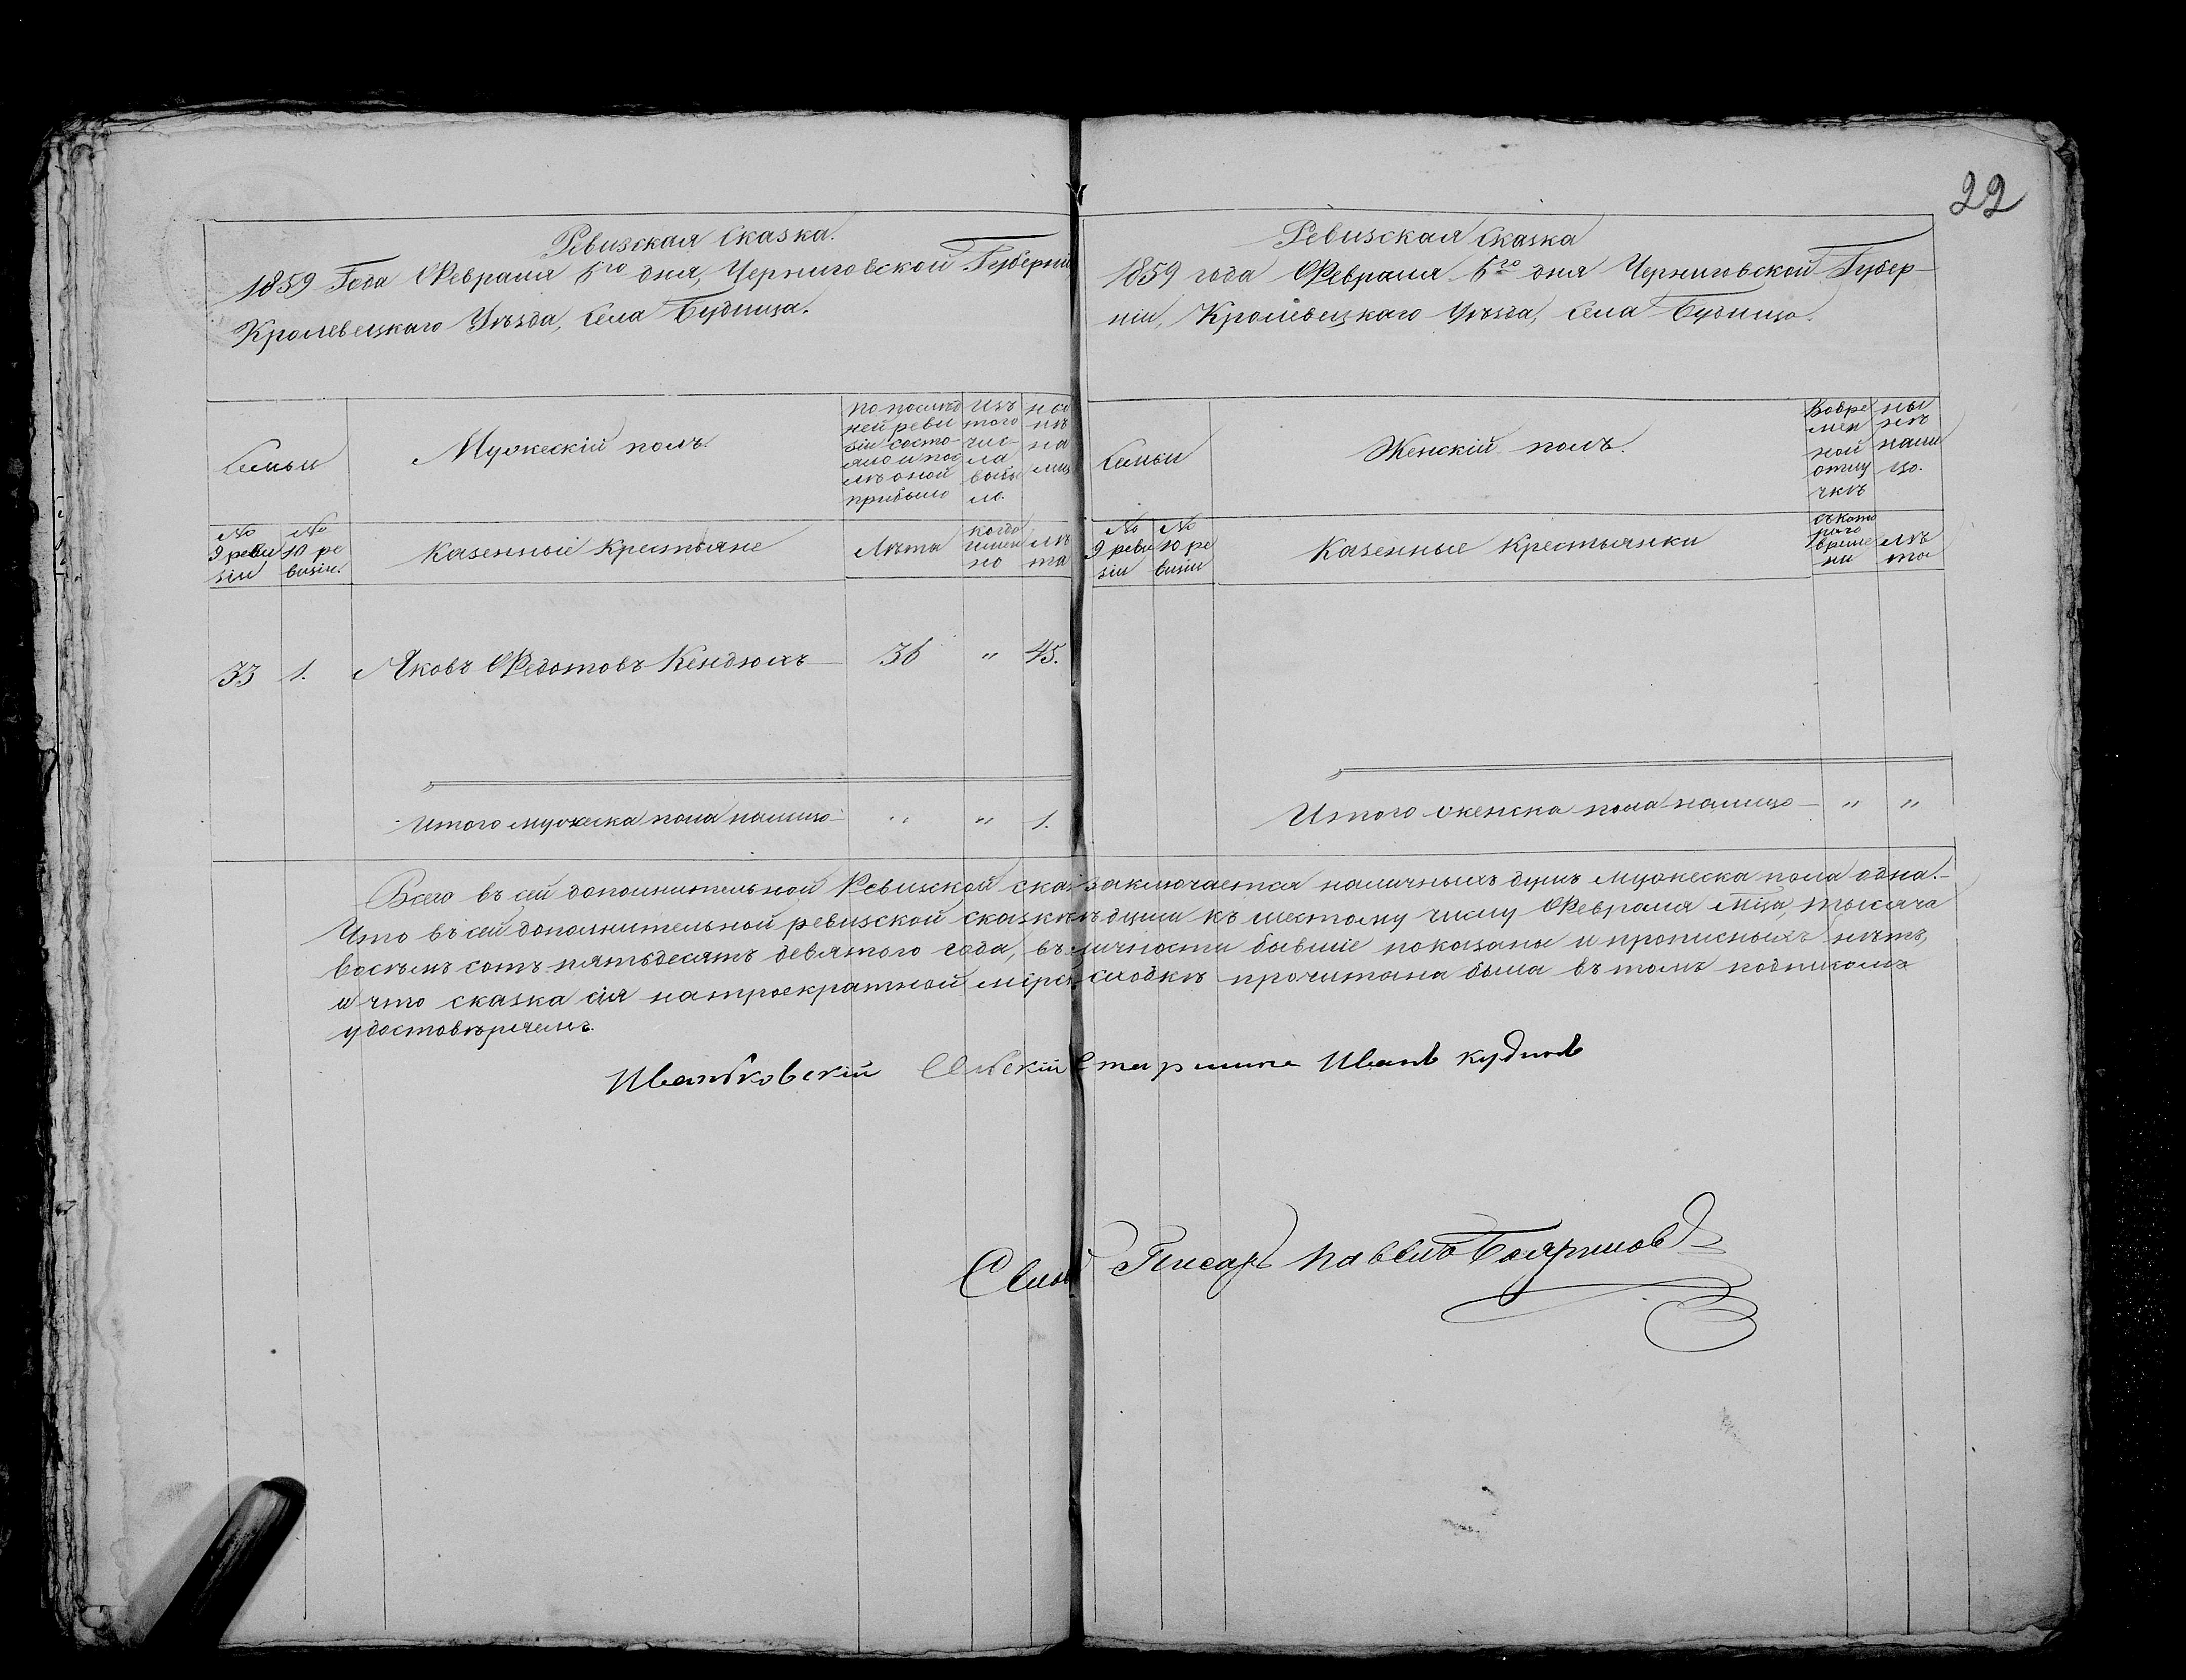 22
Ревизская Сказка.
1859 Года Февраля 6го дня, Черниговской Губерніи
Кролевецкаго Уѣзда, Села Будища.
Семьи
Мужескій полъ.
по послѣд
ней реви
зіи состо-
яло и пос
лѣ оной
прибыло
изъ
того
чис-
ла
выбы
ло.
ны
нѣ
на
лиц
№
9 реви
зіи
№
10 ре
визіи.
Казенныіе Крестьяне
Лѣта
когда
имен
но
лѣ
та
33 1. Яковъ Федотовъ Кендюхъ 36 " 45.
Итого мужеска пола налицо " " 1.
Ревизская Сказка
1859 года Февраля 6го дня Черниговской Губер-
ніи, Кролевецкаго Уѣзда, Села Будища.
Семьи
Женскій полъ.
Вовре
мен
ной
отлу
чкѣ
ны
нѣ
нали
цо.
№
9 реви
зіи
№
10 ре
визіи
Казенные Крестьянки
съкото
раго
време
ни
лѣ
та
Итого женска пола налицо " "
Всего въ сей дополнительной Ревизской сказ заключается наличныхъ душъ мужеска пола одна.
Что въ сей дополнительной ревизской сказкѣ души къ шестому числу Февраля мѣца, тысяча
восѣмъ сотъ пятьдесятъ девятого года, въ личности бывшіе показаны и прописныхъ нѣтъ,
и что сказка сія на троекратной мірск сходкѣ прочитана была въ томъ подписомъ
удостовѣряемъ.
Иваньковскій Сельскій Старшина Иванъ
Сельс Писарь Павелъ Бояриновъ